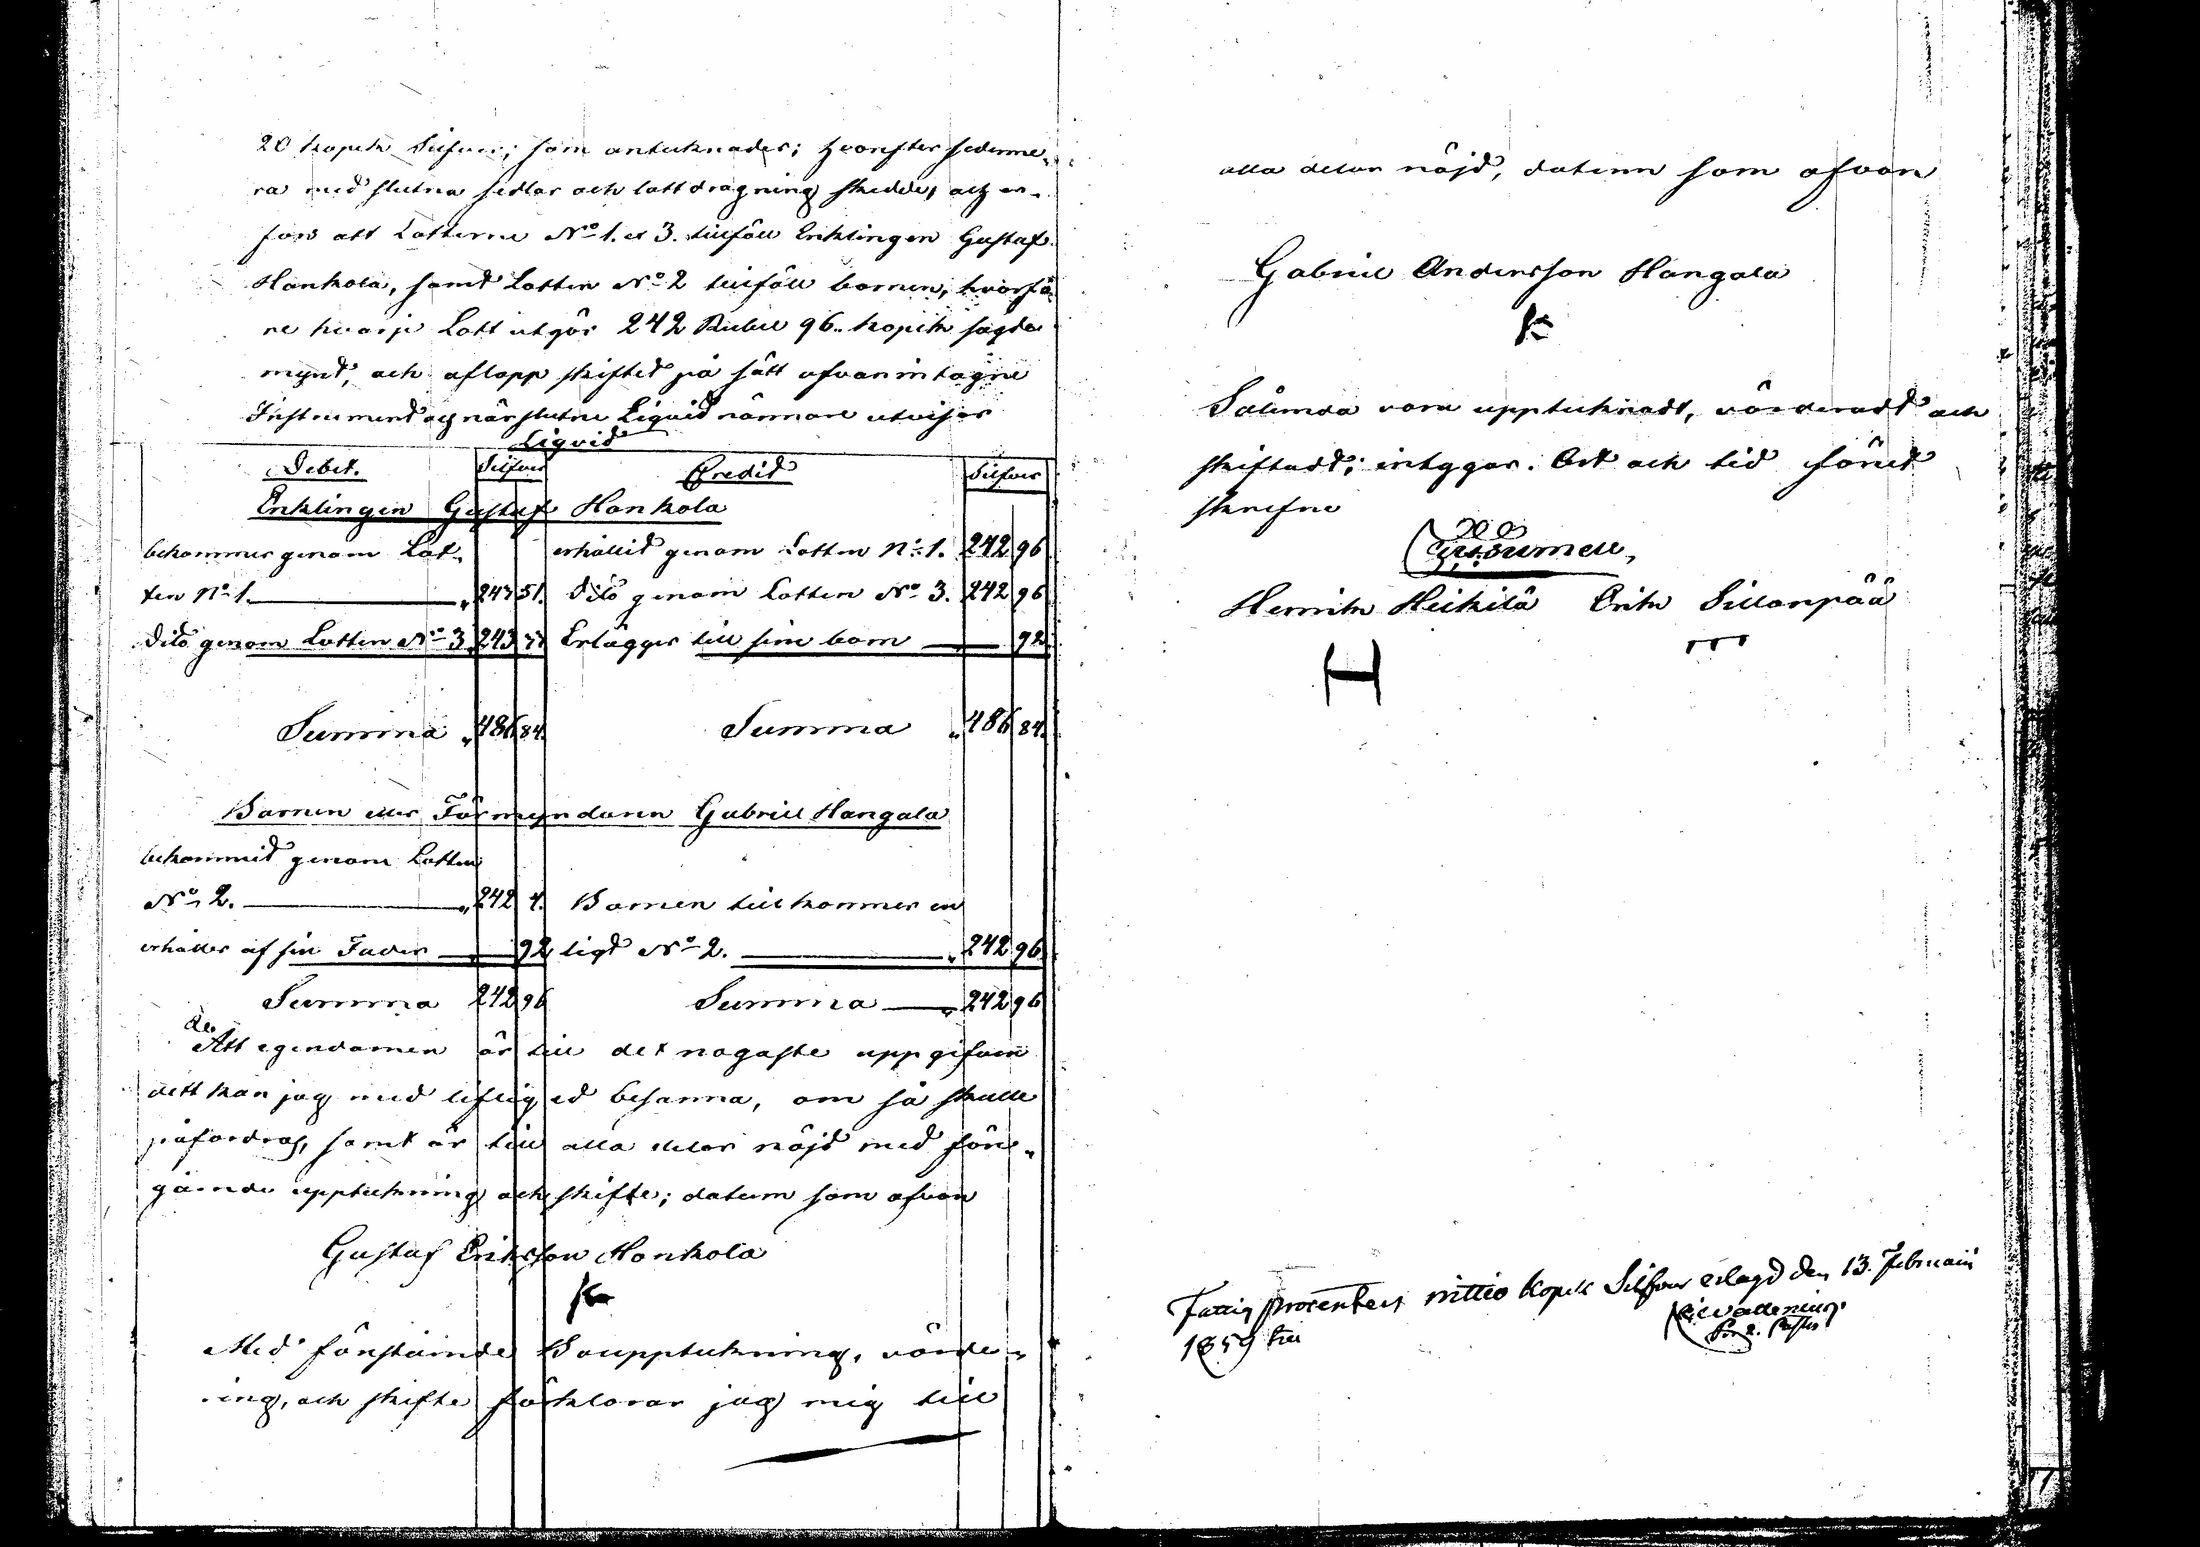 20 kopek Silfver; som antecknades; hvarefter sederme-
ra med slutna sedlar och lottdragning skedde, och er-
fors att Lotterne No 1. et 3. tillföll Enklingen Gustaf
Hankola, samt Lotten No 2 tillföll barnen, hvarfö-
re hvarje Lott utgör 242 Rubel 96 kopek sagde
mynt, och aflopp skiftet på sätt ofvanintagne
Instrument och närslutne Liquid närmare utvisar
Liquid
Debet. Silfver Credit Silfver
Enklingen Gustaf Hankola
bekommer genom Lot- erhållit genom Lotten No 1. 242 96
ten No 1. 51. Dito genom Lotten No 3. 242 96
Dito genom Lotten No 3 243 Erlägger till sine barn 92
Summa 486 84. Summa 486 84.
Barnen eller Förmyndaren Gabriel Hangala
bekommit genom Lotten
No 2. 242 4. Barnen tillkommer en
erhåller af sin Fader 92 ligt No 2. 242 96
Summa 242 96 Summa 242 96
Att egendomen är till det nogaste uppgifven
dett kan jag med liflig ed besanna, om så skulle
påfordras, samt är till alla delar nöjd med före-
gående uppteckning och skifte; datum som ofvan
Gustaf Eriksson Hankola
Med förestående Bouppteckning, värde-
ring, och skifte förklarar jag mig till
alla delar nöjd, datum som ofvan
Gabriel Andersson Hangala
Sålunda vara upptecknadt, värderadt och
skiftadt; intygar. Ort och tid förut
skrefne
Henrik Heikilä Erik Sillanpää
H
Fattig procenten nittio kopek Silfver erlagd den 13. Februarii
1859